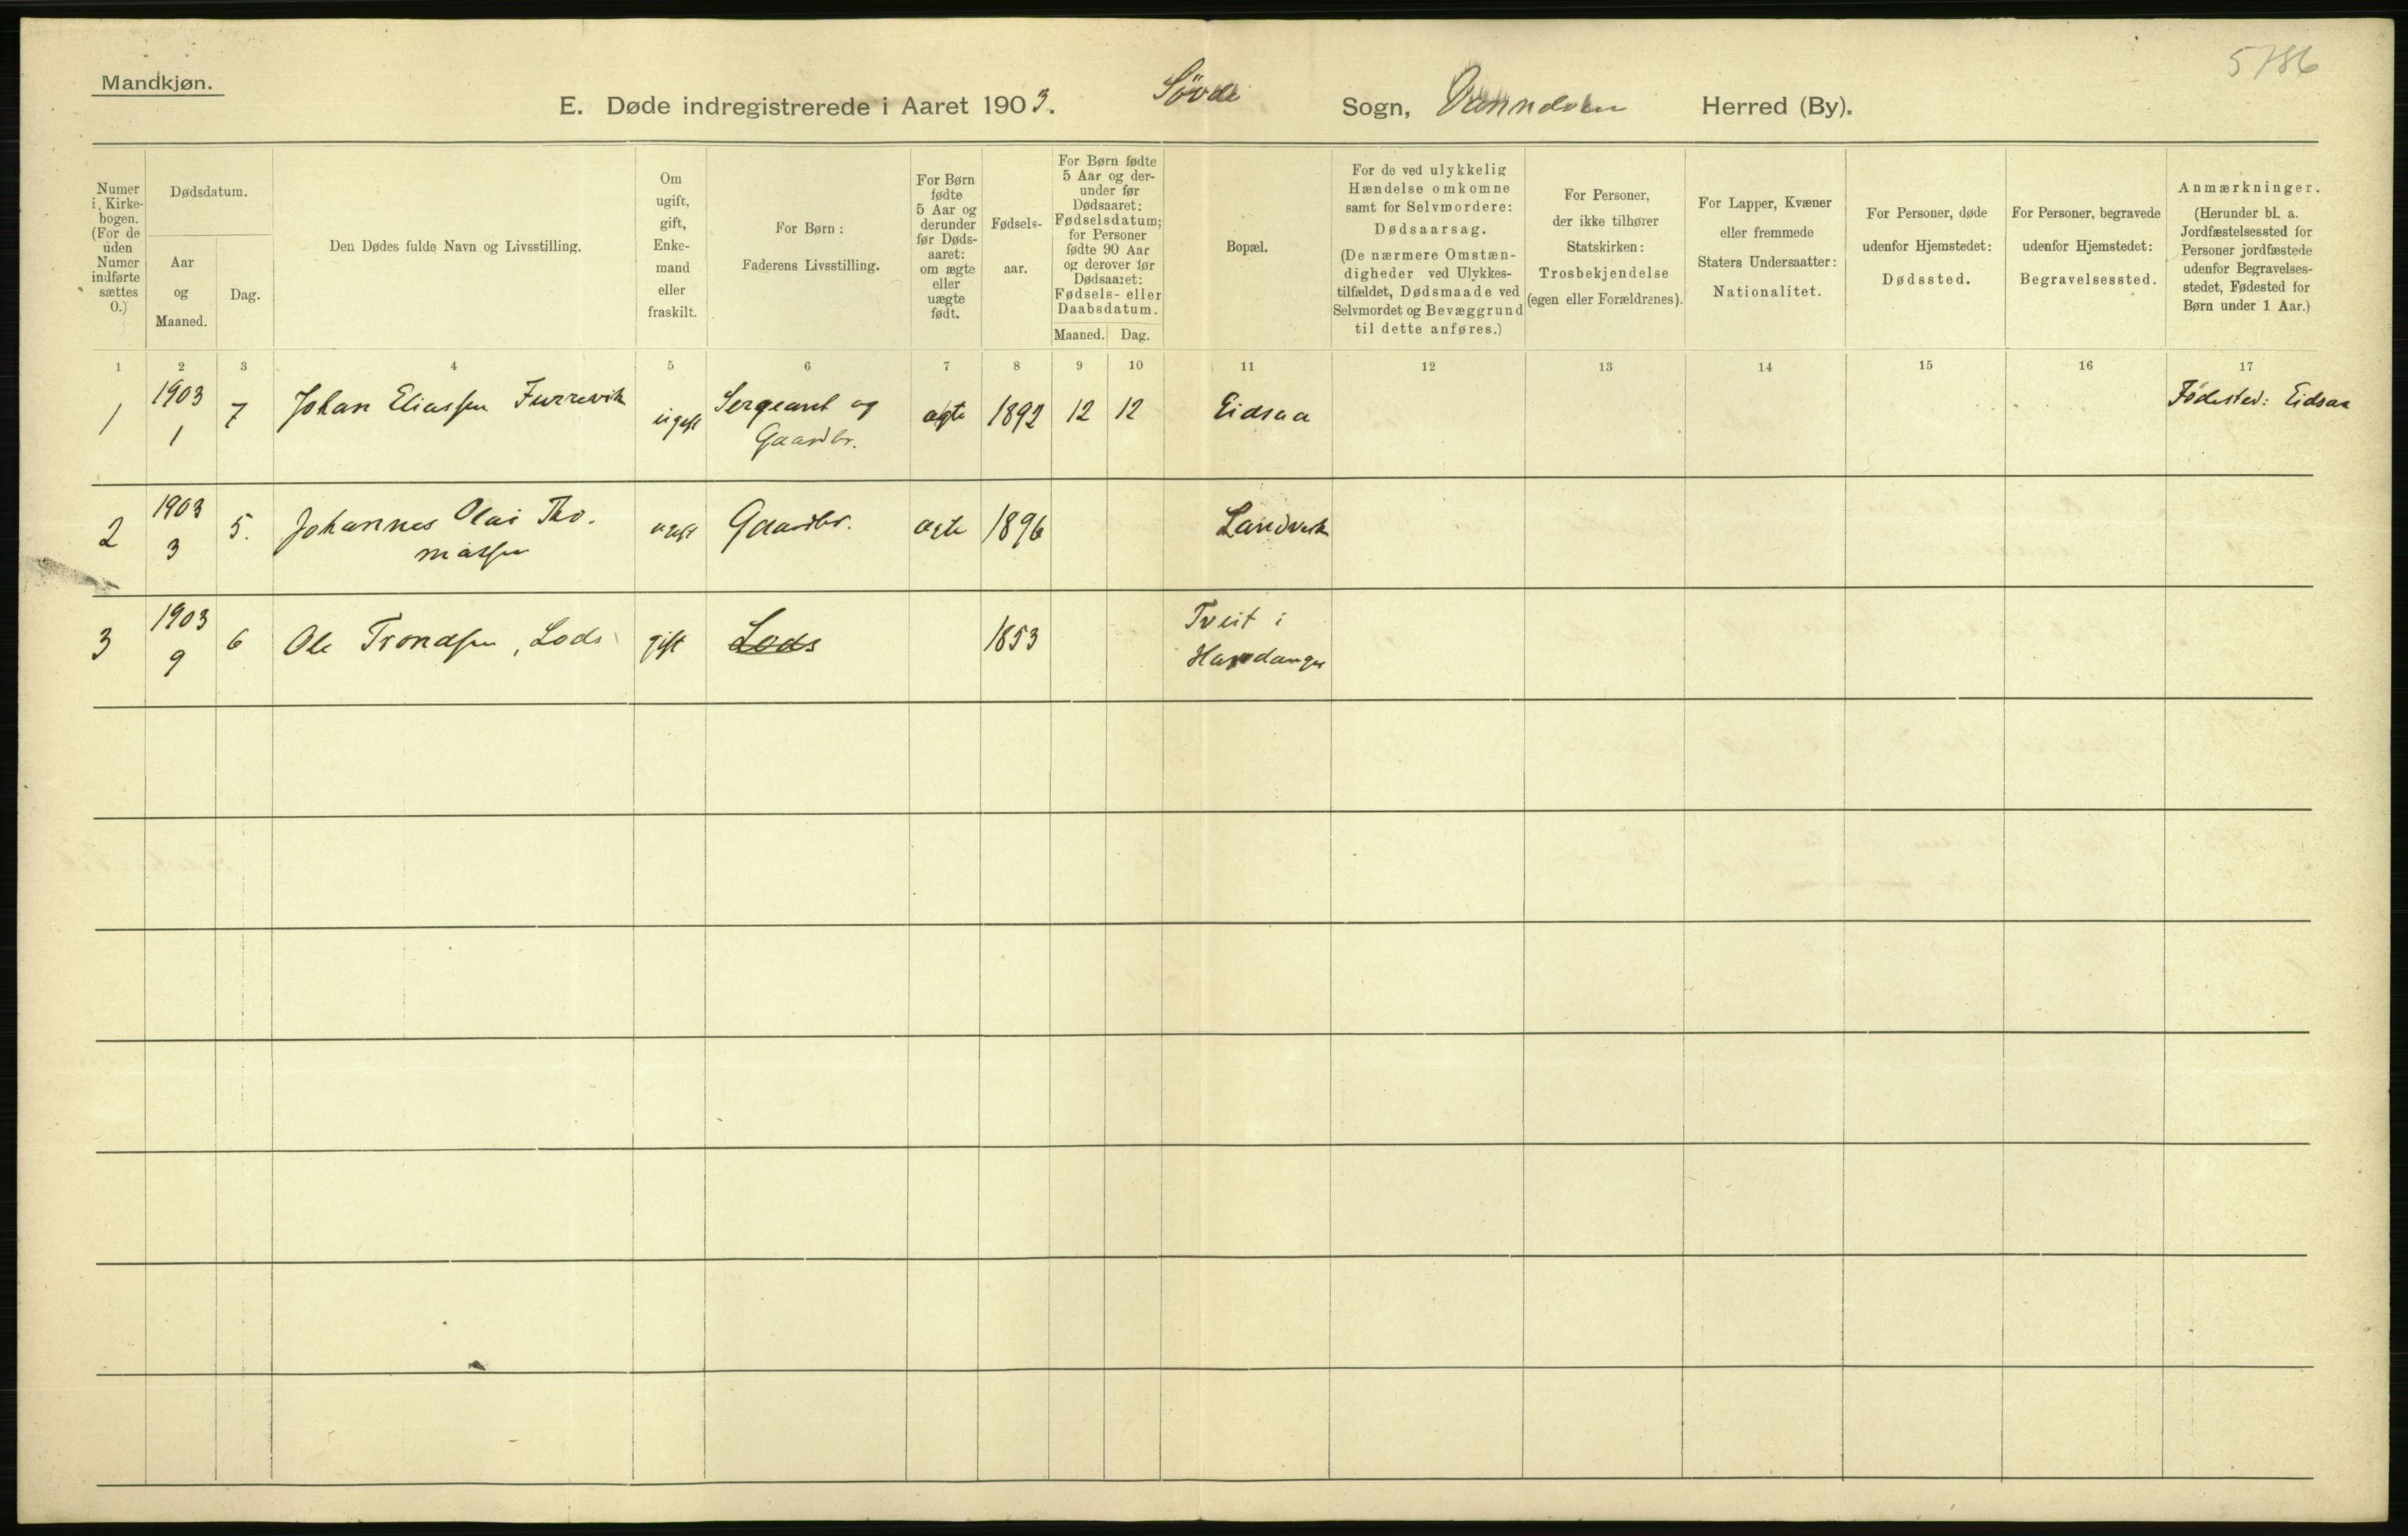 5786
Mandkjøn.
E. Døde indregistrerede i Aaret 1903. Søvde Sogn, Herred (By).
Numer i Kirkebogen. (For de uden Numer indførte sættes 0.)
Dødsdatum.
Aar og Maaned.
Dag.
Den Dødes fulde Navn og Livsstilling.
Om ugift, gift, Enkemand eller fraskilt.
For Børn: Faderens Livsstilling.
For Børn fødte 5 Aar og derunder før Dødsaaret: om ægte eller uægte født.
Fødselsaar.
For Børn fødte 5 Aar og derunder før Dødsaaret: Fødselsdatum; for Personer fødte 90 Aar og derover før Dødsaaret: Fødsels- eller Daabsdatum.
Maaned. Dag.
Bopæl.
For de ved ulykkelig Hændelse omkomne samt for Selvmordere: Dødsaarsag. (De nærmere Omstændigheder ved Ulykkestilfældet, Dødsmaade ved Selvmordet og Bevæggrund til dette anføres.)
For Personer, der ikke tilhører Statskirken: Trosbekjendelse (egen eller Forældrenes).
For Lapper, Kvæner eller fremmede Staters Undersaatter: Nationalitet.
For Personer, døde udenfor Hjemstedet: Dødssted.
For Personer, begravede udenfor Hjemstedet: Begravelsessted.
Anmærkninger. (Herunder bl. a. Jordfæstelsessted for Personer jordfæstede udenfor Begravelsesstedet, Fødested for Børn under 1 Aar.)
1 2 3 4 5 6 7 8 9 10 11 12 13 14 15 16 17
1 1903 1 7 Johan Eliassen Furrevik ugift Sergeant og Gaardbr. ægte 1892 12 12 Eidsaa Fødested: Eidsaa
2 1903 3 5. Johannes Olai Thomassen ugift Gaardbr. ægte 1896 Landvik
3 1903 9 6 Ole Trondsen, Lods gift Lods 1853 Tveit i Hardanger